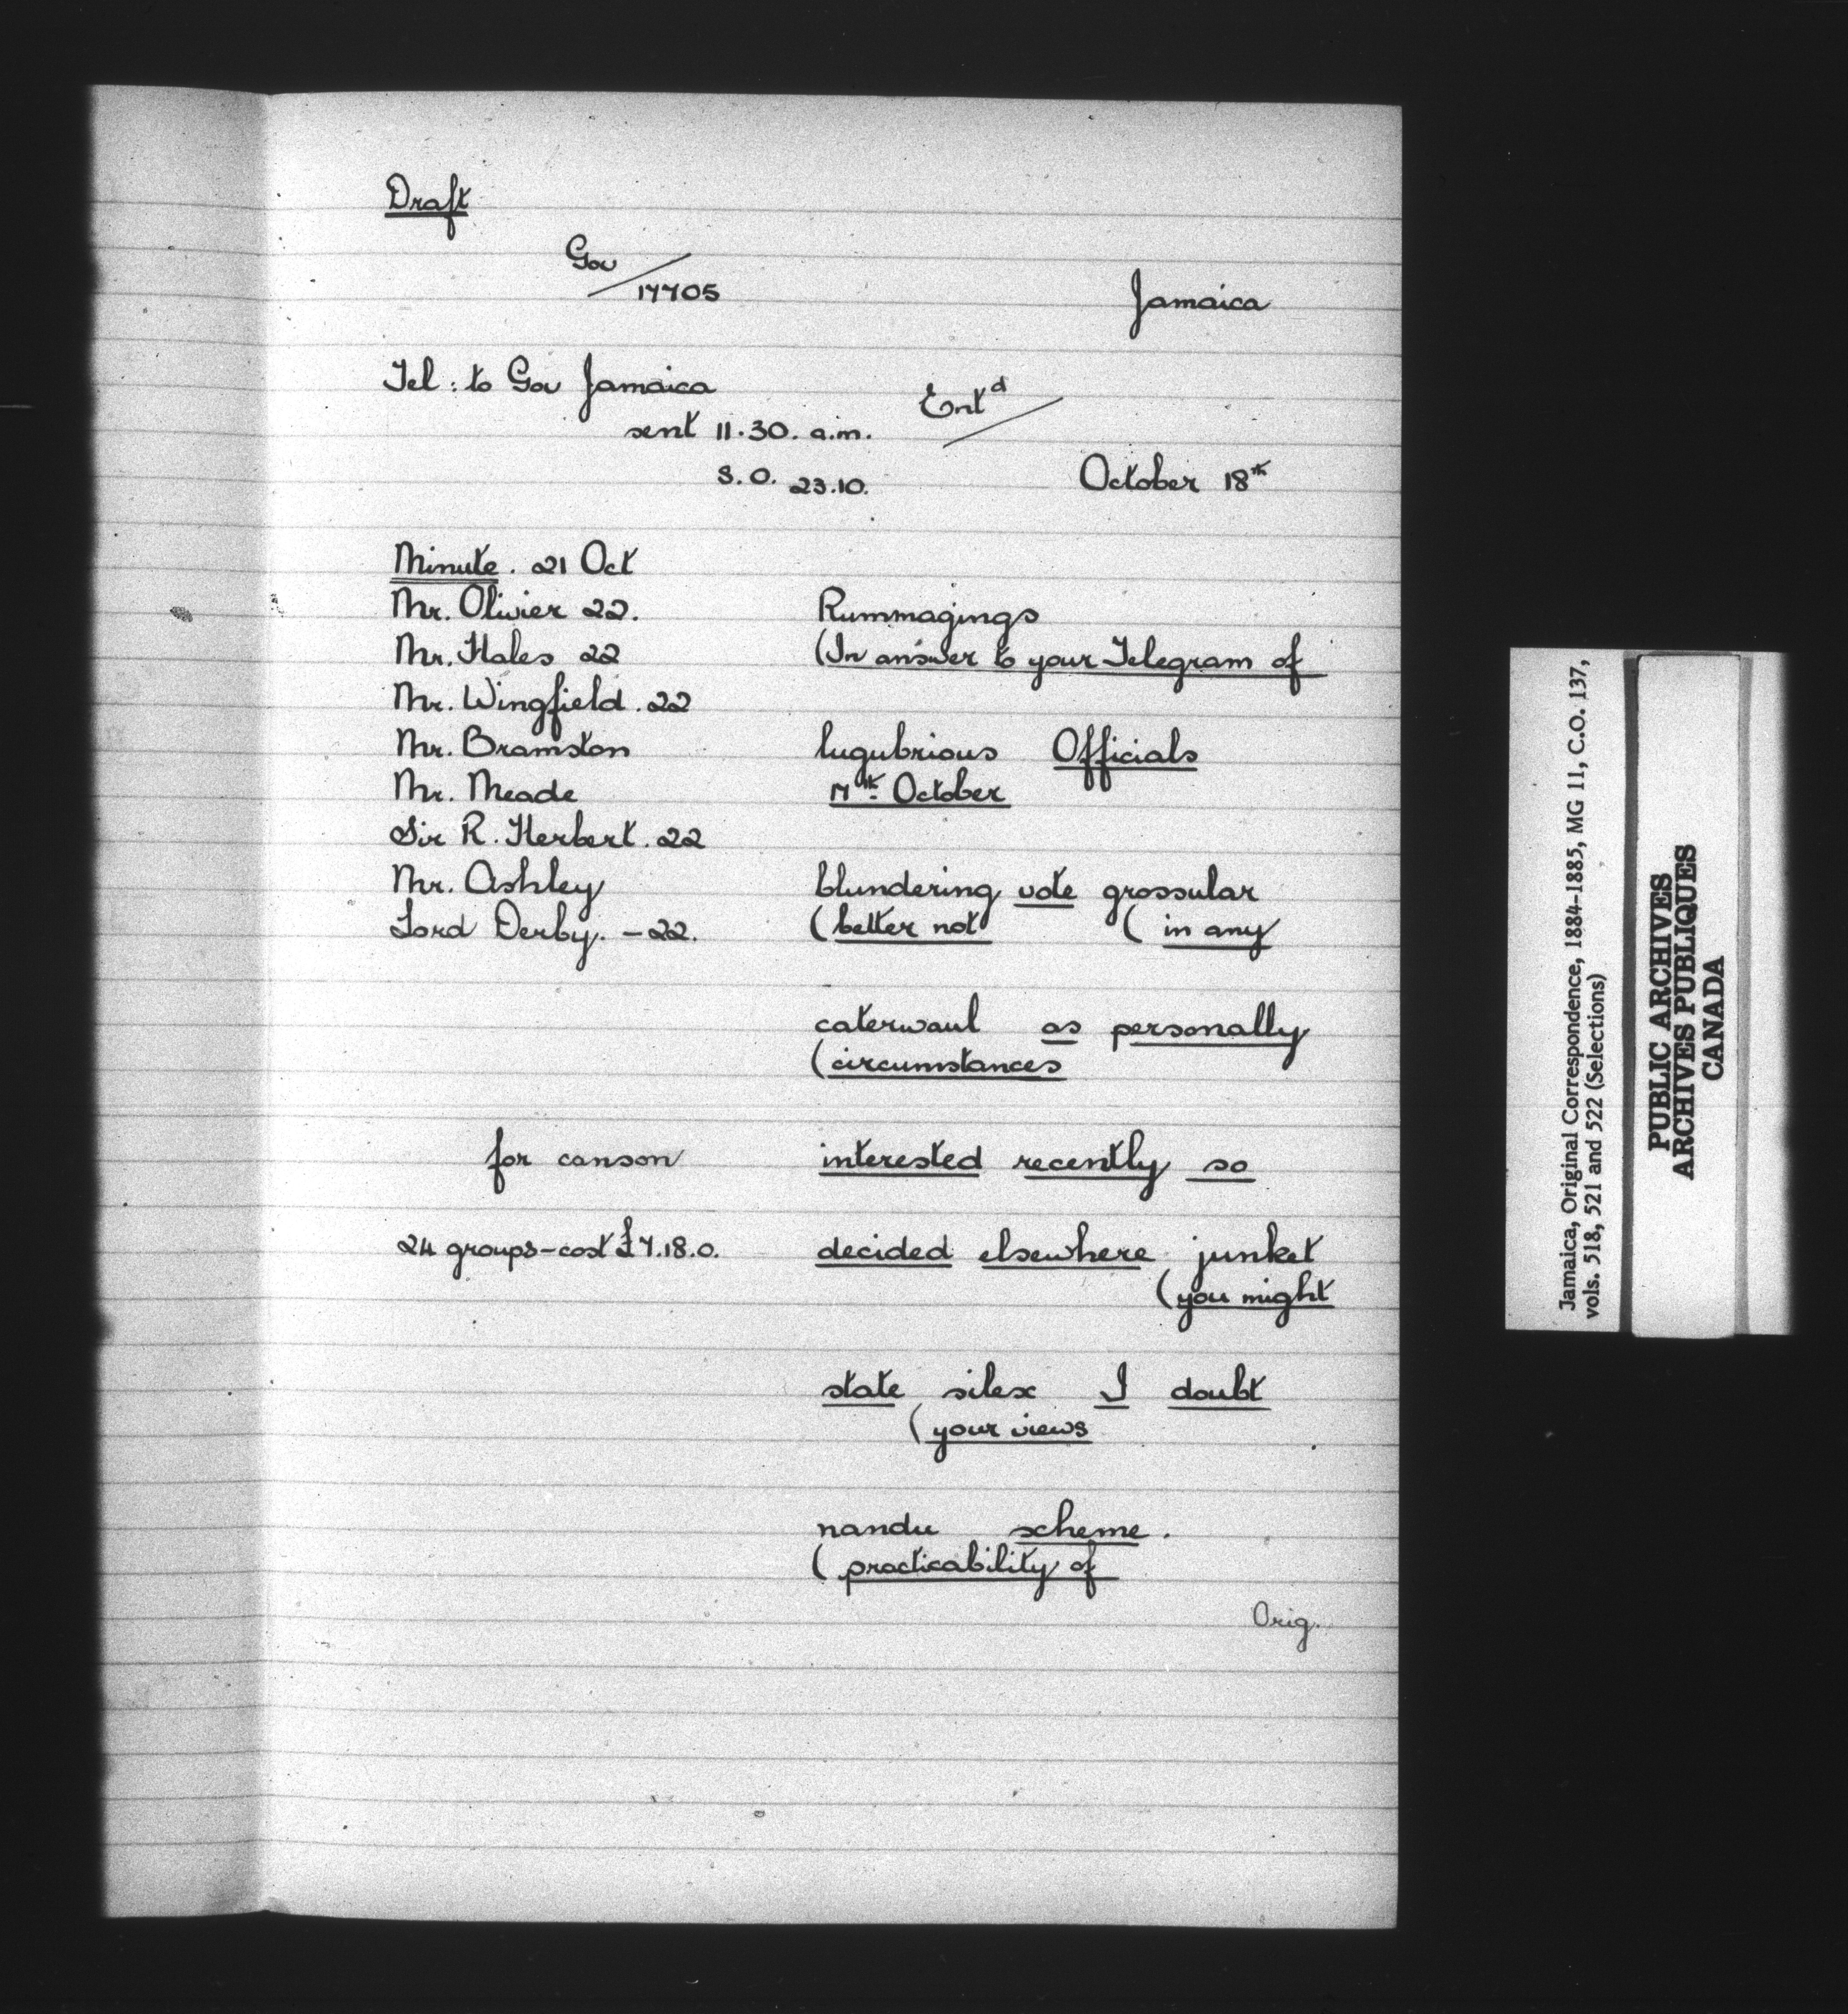 Draft
Gov
17705
Jamaica
Tel: to Gov Jamaica
Entd
sent 11.30. a.m.
S.O. 23.10.
October 18th
Minute. 21 Oct
Mr. Olivier 22.
Mr. Hales 22
Mr. Wingfield. 22
Mr. Bramston
Mr. Meade
Sir R. Herbert. 22
Mr. Ashley
Lord Derby. - 22.
for canson
24 groups - cost £7.18.0.
Rummagings
(In answer to your Telegram of
lugubrious Officials
17th October
blundering vote grossular
(better not (in any
caterwaul as personally
(circumstances
interested recently so
decided elsewhere junket
(you might
state silex I doubt
(your views
nandu scheme.
(practicability of
Orig.
Jamaica, Original Correspondence, 1884-1885, MG 11, C.O. 137,
vols. 518, 521 and 522 (Selections)
PUBLIC ARCHIVES
ARCHIVES PUBLIQUES
CANADA